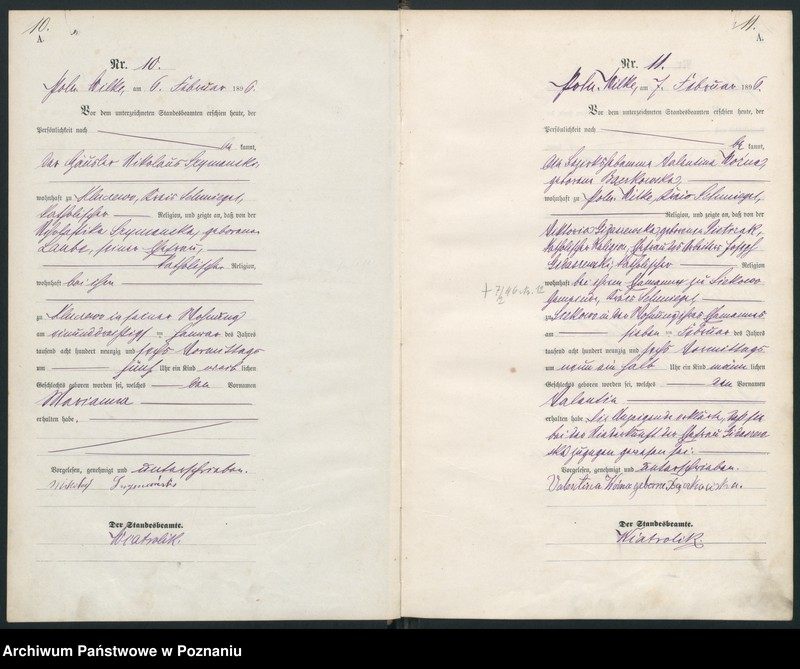 10.
A.
Nr. 10.
Poln. Wilke, am 6. Februar 1896.
Vor dem unterzeichneten Standesbeamten erschien heute, der
Persönlichkeit nach
be kannt,
der Häusler Nikolaus Szymanski,
wohnhaft zu Kreis Schmiegel,
katholischer Religion, und zeigte an, daß von der
Szymanska, geborenen
Laube, seiner Ehefrau,
katholischer Religion,
wohnhaft bei ihm
zu in seiner Wohnung
am einunddreißigsten Januar des Jahres
tausend acht hundert neunzig und sechs Vormittags
um fünf Uhr ein Kind weib lichen
Geschlechts geboren worden sei, welches den Vornamen
Marianna
erhalten habe.
Vorgelesen, genehmigt und unterschrieben.
Szymański
Der Standesbeamte.
Kiatrolik.
11.
A.
Nr. 11.
Poln. Wilke, am 7. Februar 1896.
Vor dem unterzeichneten Standesbeamten erschien heute, der
Persönlichkeit nach
be kannt,
die Bezirkshebamme Valentina Woźna,
geborene Bączkowska,
wohnhaft zu Poln. Wilke, Kreis Schmiegel,
Religion, und zeigte an, daß von der
Viktoria geborenen
katholischer Religion, Ehefrau des Arbeiters Joseph
katholischer Religion
wohnhaft bei ihrem Ehemanne zu Sielowo
Kreis Schmiegel
zu Sielowo in der Wohnung ihres Ehemannes
am sieben ten Februar des Jahres
tausend acht hundert neunzig und sechs Vormittags
um neun ein halb Uhr ein Kind männ lichen
Geschlechts geboren worden sei, welches den Vornamen
Valentin
erhalten habe. Die Anzeigende erklärte, daß sie
bei der Niederkunft der Ehefrau
zugegen gewesen sei.
Vorgelesen, genehmigt und unterschrieben.
Valentina Woźna geborene Bączkowska.
Der Standesbeamte.
Kiatrolik.
Archiwum Państwowe w Poznaniu